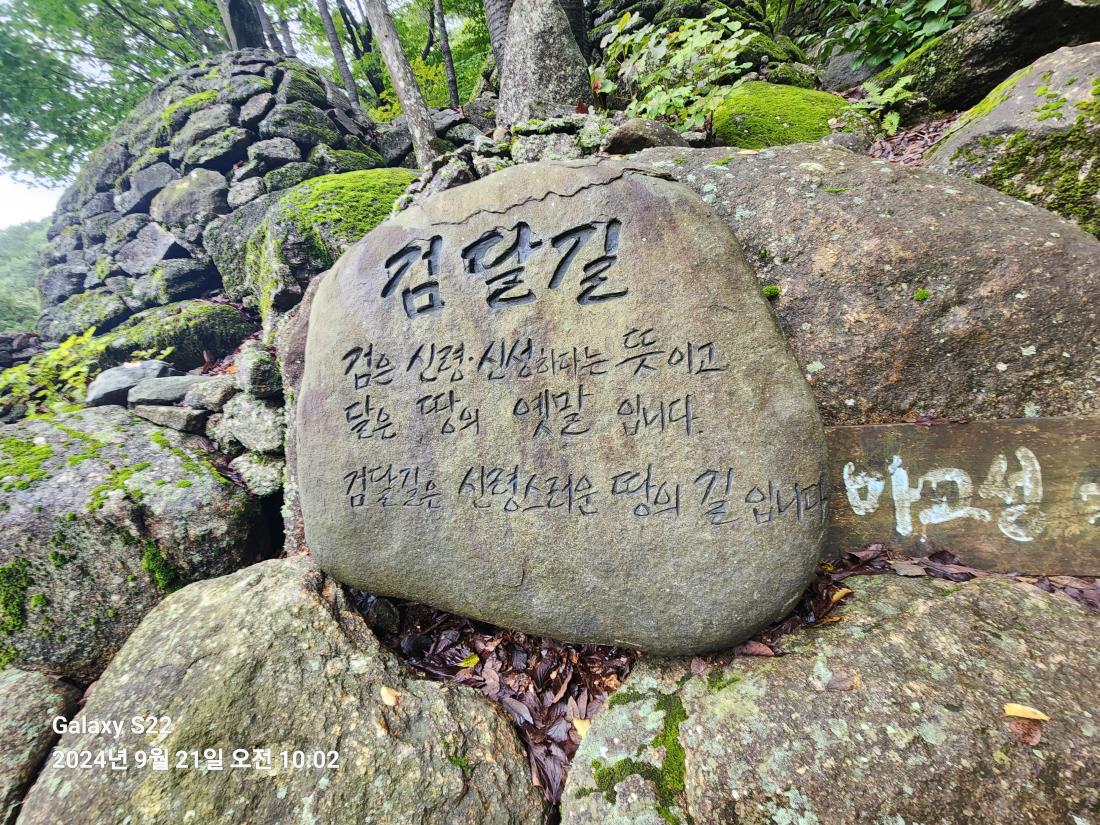 검달길
검은 신령·신성하다는 뜻이고
달은 땅의 옛말 입니다.
검달길은 신령스러운 땅의 길 입니다
마고성
Galaxy S22
2024년 9월 21일 오전 10:02